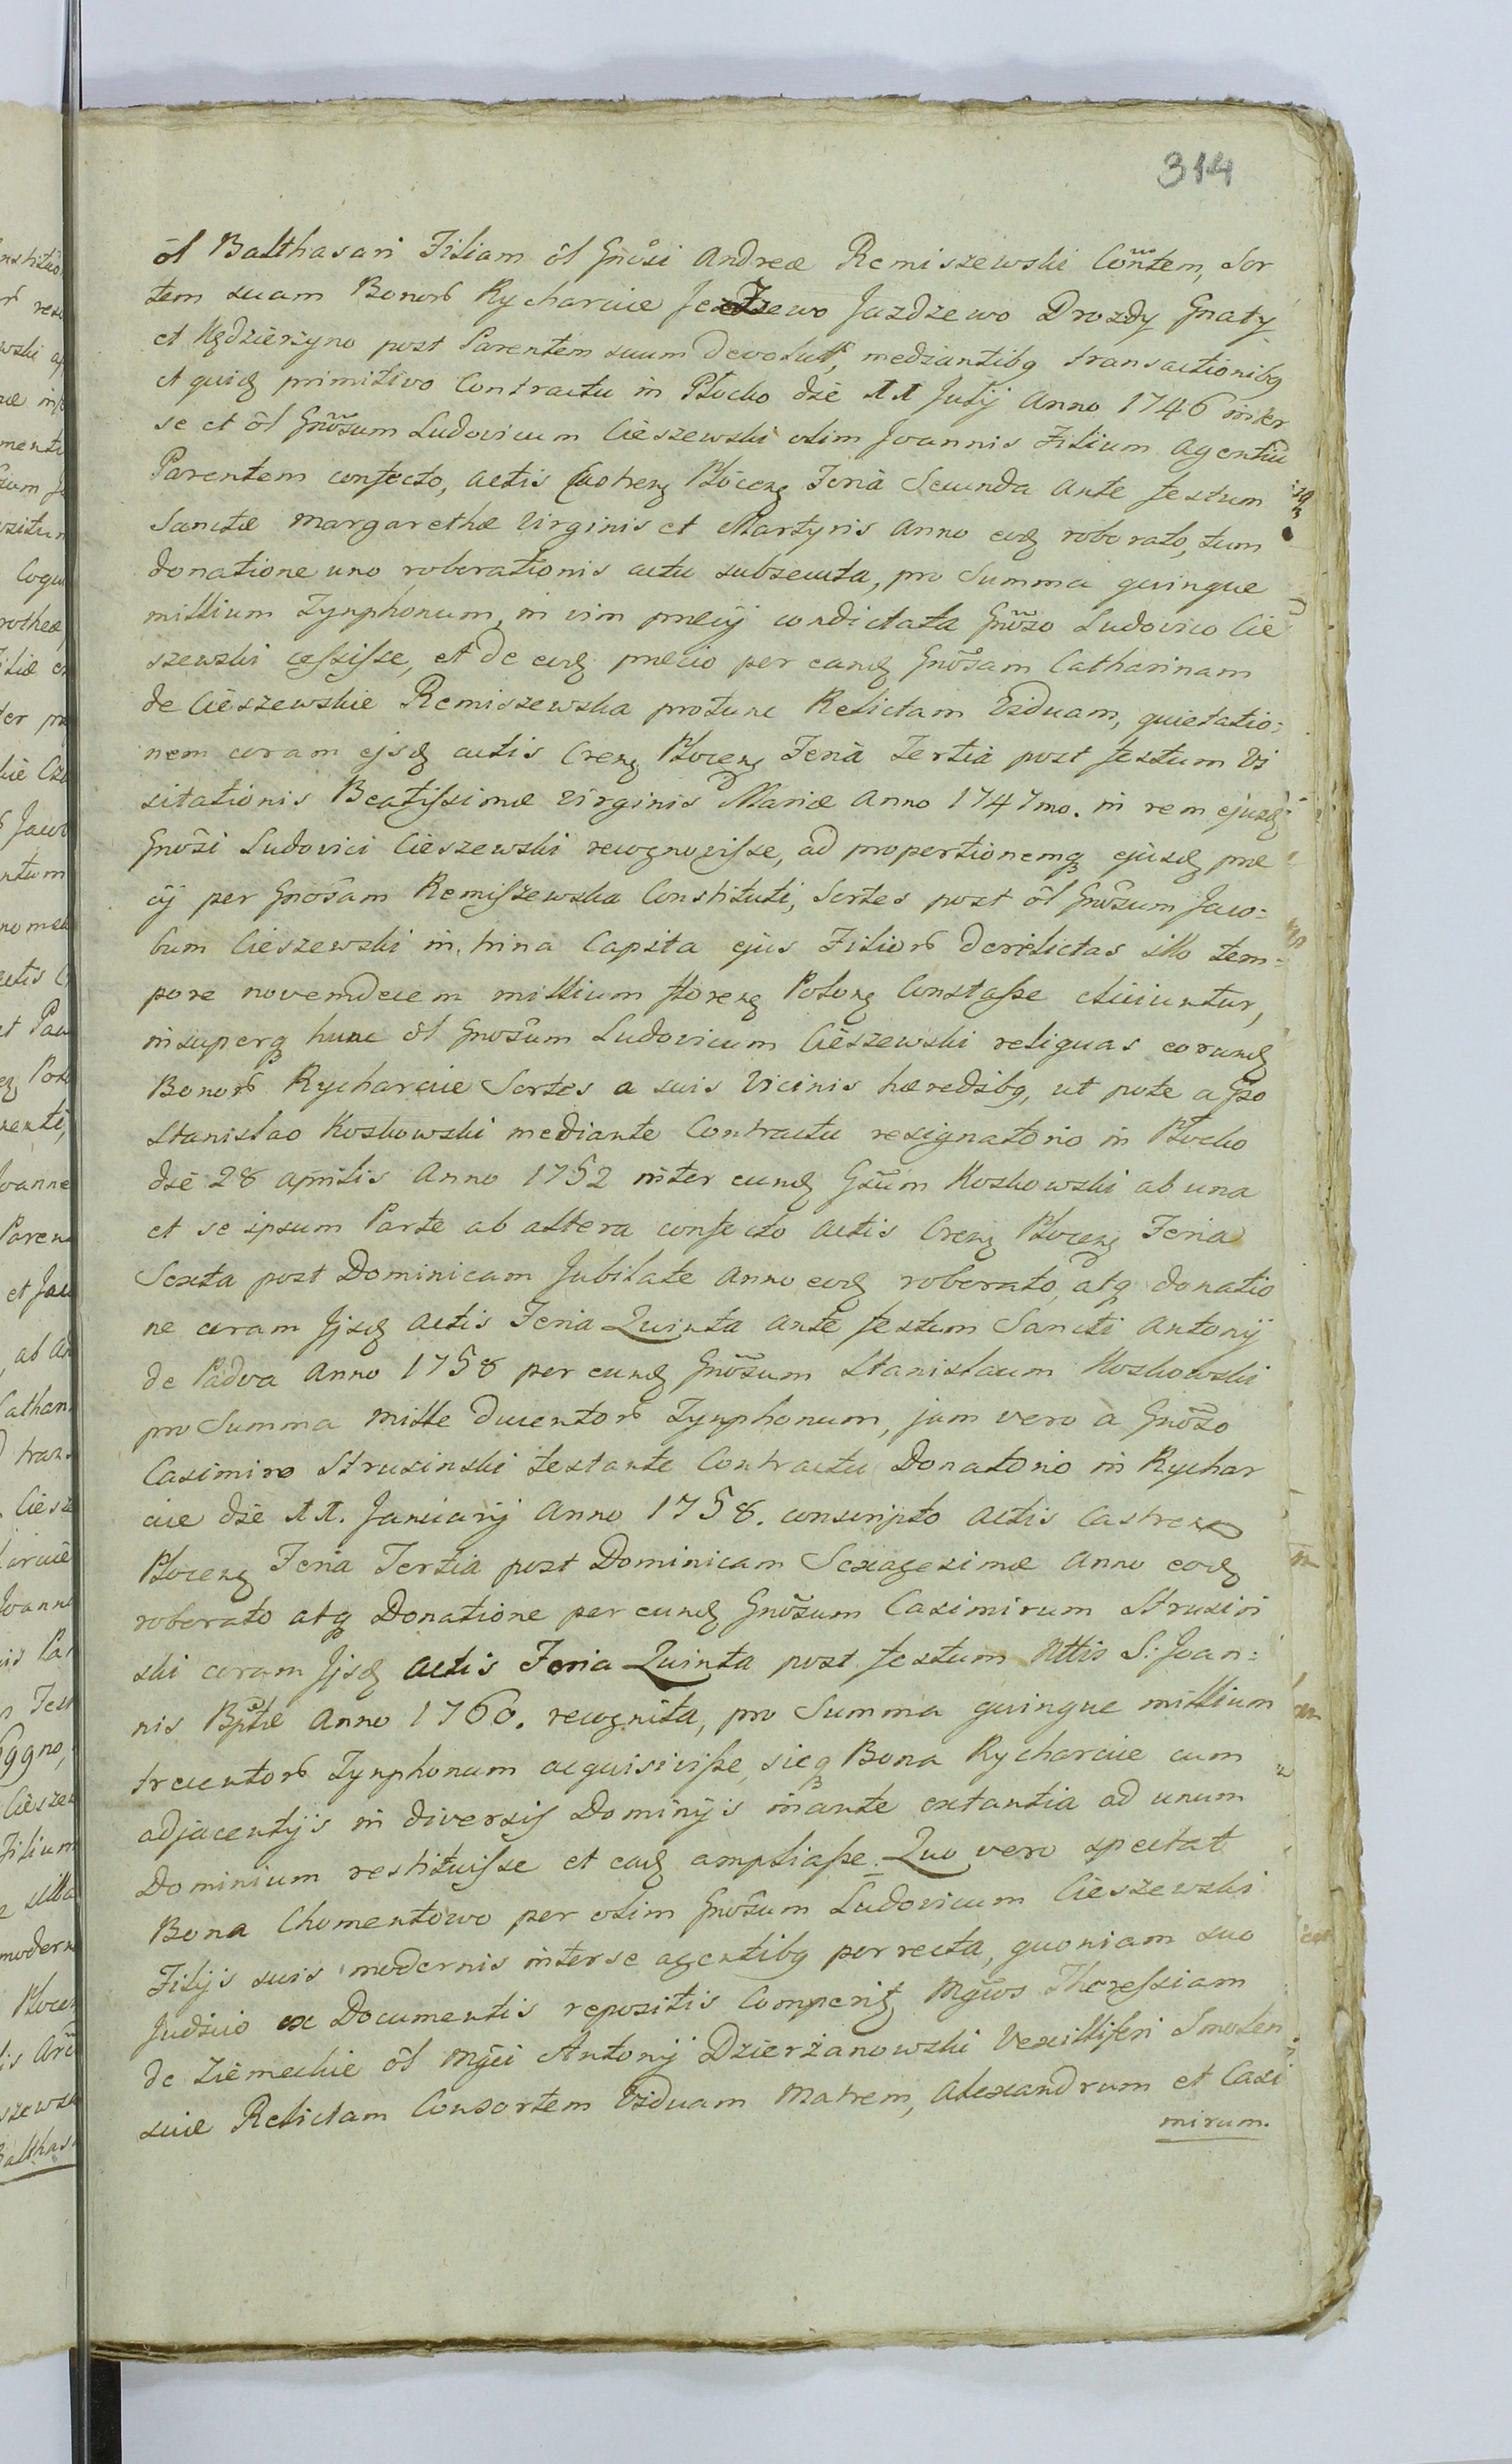 314
ol Balthasari Filiam ol Gnosi Andreæ Remiszewski Contem, Sor
tem suam Bonor Rycharcie Jezewo Jazdzewo Drozdy Gnaty
et Kędzierzyno post Parentem suum devolut, mediantibq transactionibq
et quidq primitivo Contractu in Płocko die 11 Julij Anno 1746 inter
se et ol Gnosum Ludovicum Cieszewski olim Joannis Filium Agentiu
Parentem confecto, actis Castrenq Płocenq Feria Secunda ante festum
Sanctæ Margarethæ Virginis et Martyris Anno eodq roborato, tum
donatione uno roborationis actu subsecuta, pro Summa quinque
millium Tynphonum, in vim præcij condictata Gnoso Ludovico Cie
szewski cessisse, et de eodq præcio per eandq Gnosam Catharinam
de Cieszewskie Remiszewska protunc Relictam Viduam, quietatio:
nem coram ejsdq actis Crenq Płocenq Feria Tertia post festum Vi
sitationis Beatissimæ Virginis Mariæ Anno 1747mo. in rem ejusdq
Gnosi Ludovici Cieszewski recognovisse, ad proportionemq ejusdq præ
cij per Gnosam Remiszewska Constituti, Sortes post ol Gnosum Jaco:
bum Cieszewski in trina Capita ejus Filior derelictas illo tem:
pore novemdecem millium florenq Polonq Constasse eliciuntur,
insuperq hunc ol Gnosum Ludovicum Cieszewski reliquas eorundq
Bonor Rycharcie Sortes a suis Vicinis hæredibq, ut pote a Gso
Stanislao Koskowski mediante Contractu resignatorio in Płocko
die 28 Aprilis Anno 1752 inter eundq Gsum Koskowski ab una
et se ipsum Parte ab altera confecto Actis Crenq Płocenq Feria
Sexta post Dominicam Jubilate Anno eodq roborato, atq donatio
ne coram Ijsdq Actis Feria Quinta ante festum Sancti Antonij
de Padva Anno 1758 per eundq Gnosum Stanislaum Koskowski
pro Summa mille ducentor Tynphonum, jam vero a Gnoso
Casimiro Strusinski testante Contractu Donatorio in Rychar
cie die 11. Januarij Anno 1758. conscripto Actis Castren
Płocenq Feria Tertia post Dominicam Sexagesimæ Anno eodq
roborato atq Donatione per eundq Gnosum Casimirum Strusin
ski coram Ijsdq Actis Feria Quinta post festum Nttis S: Joan:
nis Bptæ Anno 1760. recognita, pro Summa quinque millium
trecentor Tynphonum acquisivisse, sicq Bona Rycharcie cum
adjacentijs in diversis Dominijs inante extantia ad unum
Dominium restituisse et eadq ampliasse. Quo vero spectat
Bona Chomentowo per olim Gnosum Ludovicum Cieszewski
Filijs suis modernis interse agentibq porrecta, quoniam suo
Judicio ex Documentis repositis Comperitq Mgcos Theressiam
de Ziemeckie ol Mgci Antonij Dzierżanowski Vexilliferi Smolen
sciæ Relictam Consortem Viduam Matrem, Alexandrum et Casi
mirum.